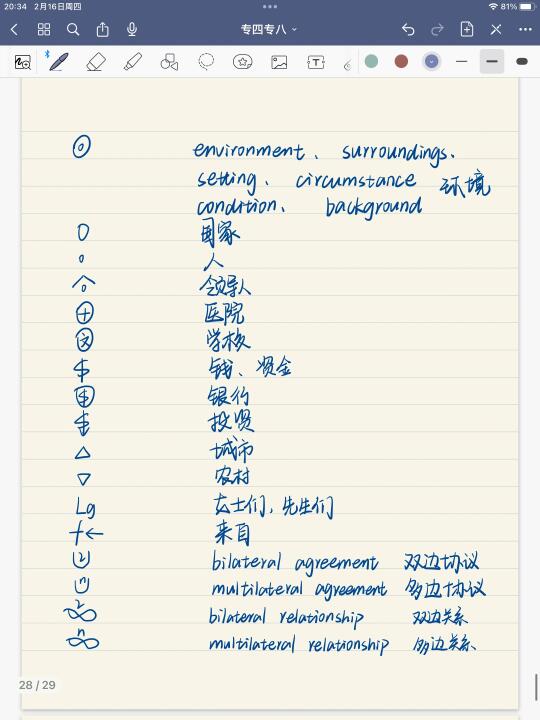 20:34 2月16日周四 81%
专四专八
environment、surroundings.
setting、circumstance 环境
condition、background
国家
人
领导人
医院
学校
$ 钱、资金
$ 银行
$ 投资
城市
农村
Lg 女士们,先生们
f← 来自
2 bilateral agreement 双边协议
n multilateral agreement 多边协议
2 ∞ bilateral relationship 双边关系
n ∞ multilateral relationship 多边关系
28 / 29